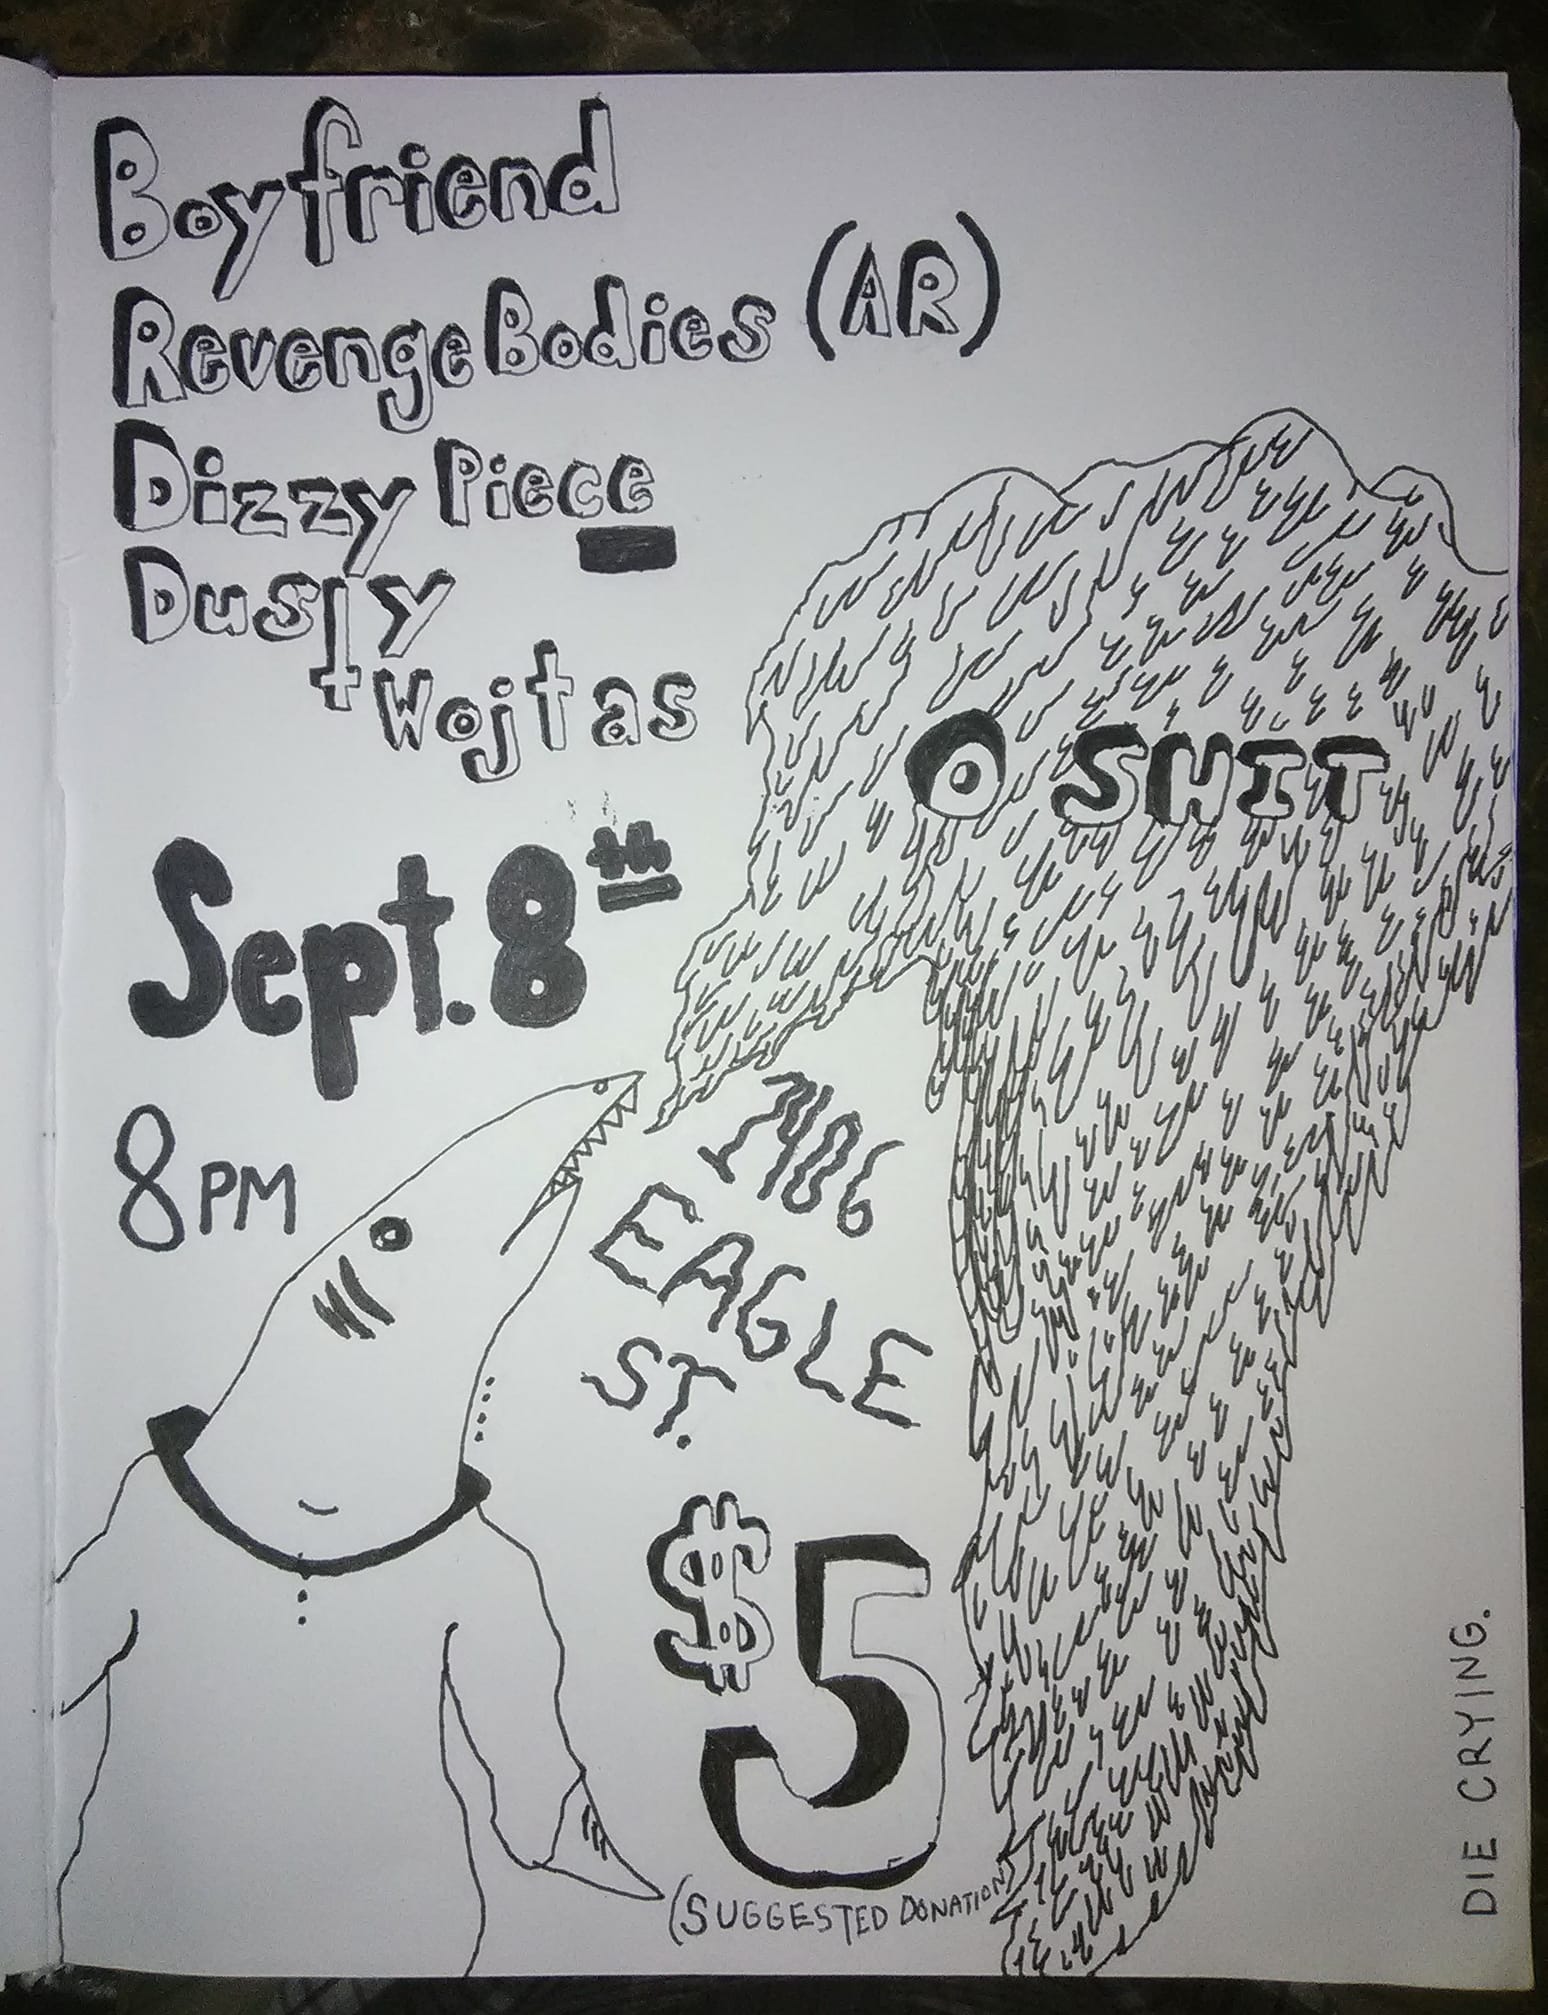 Boyfriend
Revenge Bodies (AR)
Dizzy Piece
Dusty
+ Wojtas
O SHIT
Sept. 8th
8PM
1406
EAGLE
ST.
$5
(SUGGESTED DONATION)
DIE CRYING.